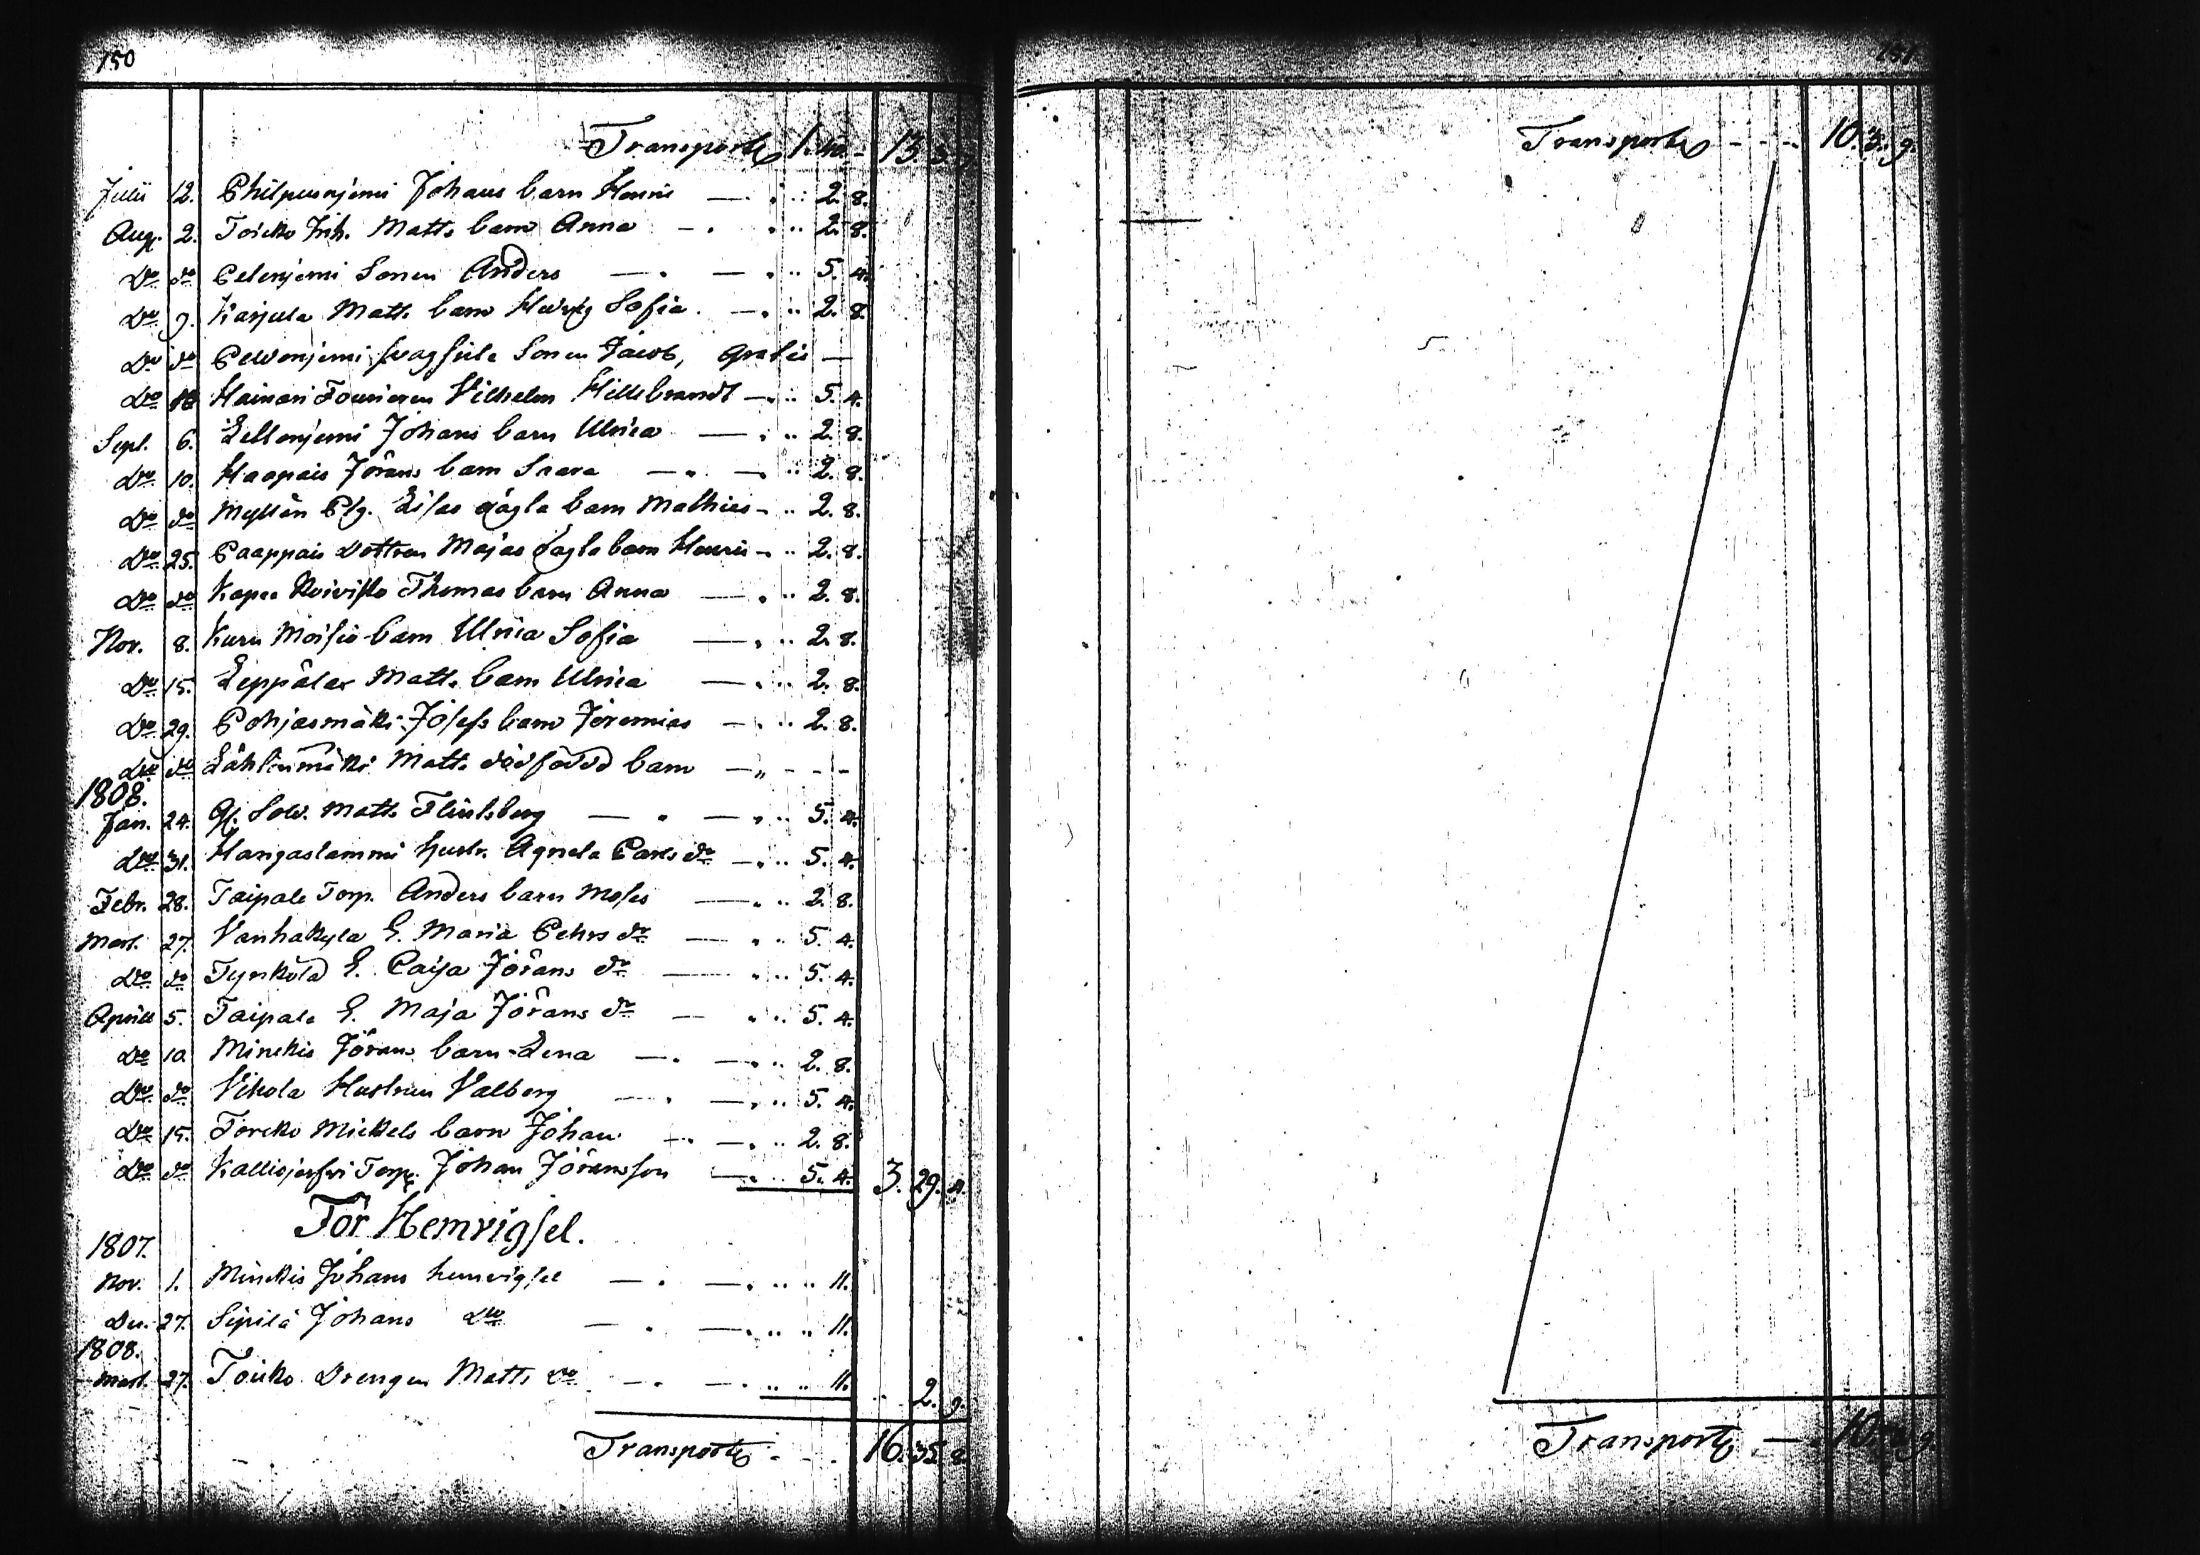 150
Transport 1. 40. - 13. 3.
Julii 12. Philpusnjemi Johans barn Henric — . .. 2. 8.
Aug. 2. Toicko Inh. Matts barn Anna — . .. 2. 8.
Do do Pelenjemi Sonen Anders — . — . .. 5. 4.
Do 9. Karjula Matts barn Hedvig Sofia. — . .. 2. 8.
Do do Pelvenjemi Sonen Jacob, gratis —
Do 16 Hainari Fourieren Vilhelm Hillebrandt — . .. 5. 4.
Sept. 6. Lillenjemi Johans barn Ulrica — . .. 2. 8.
Do 10. Haapais Jörans barn Saara — . — .. 2. 8.
Do do Myllän Pig. Lisas oägta barn Mathias — .. 2. 8.
Do 25. Paappais Dottren Majas oägta barn Henric — .. 2. 8.
Do do Koivisto Thomas barn Anna — . .. 2. 8.
Nov. 8. Kuru Moisio barn Ulrica Sofia — . .. 2. 8.
Do 15. Leppälax Matts barn Ulrica — . .. 2. 8.
Do 29. Pohjasmäki Josefs barn Jeremias — . .. 2. 8.
Do do Lähteenmäki Matts dödfödd barn — „ - - -
1808.
Jan. 24. Gf. Sold. Matts Flintsberg — . — . .. 5. 4.
Do 31. Hangaslammi hustr. Agneta Pars dr — . .. 5. 4.
Febr. 28. Taipale Torp. Anders barn Moses — . .. 2. 8.
Mart. 27. Vanhakyla E. Maria Pehrs dr — . .. 5. 4.
Do do Tynkölä E. Caisa Jörans dr — . .. 5. 4.
Aprill 5. Taipale E. Maja Jörans dr — . .. 5. 4.
Do 10 Minckis Jörans barn Lena — . — . .. 2. 8.
Do do Vihola Hustrun Valborg — . — . .. 5. 4.
Do 15. Toicko Mickels barn Johan — . — . .. 2. 8.
Do do Kalliojerfvi Torp. Johan Jöransson — . .. 5. 4. 3. 29. 4.
För Hemvigsel.
1807.
Nov. 1. Minckis Johans hemvigsel — . — . .. .. 11.
Dec. 27. Sipilä Johans Do — . — . .. .. 11.
1808.
Mart. 27. Toicko Drengen Matts Do — . — . .. .. 11. .. 2. 9.
Transport - - . 16. 35. 8.
151
Transport - - - 10. 3. 9.
Transport — . 10. 3. 9.